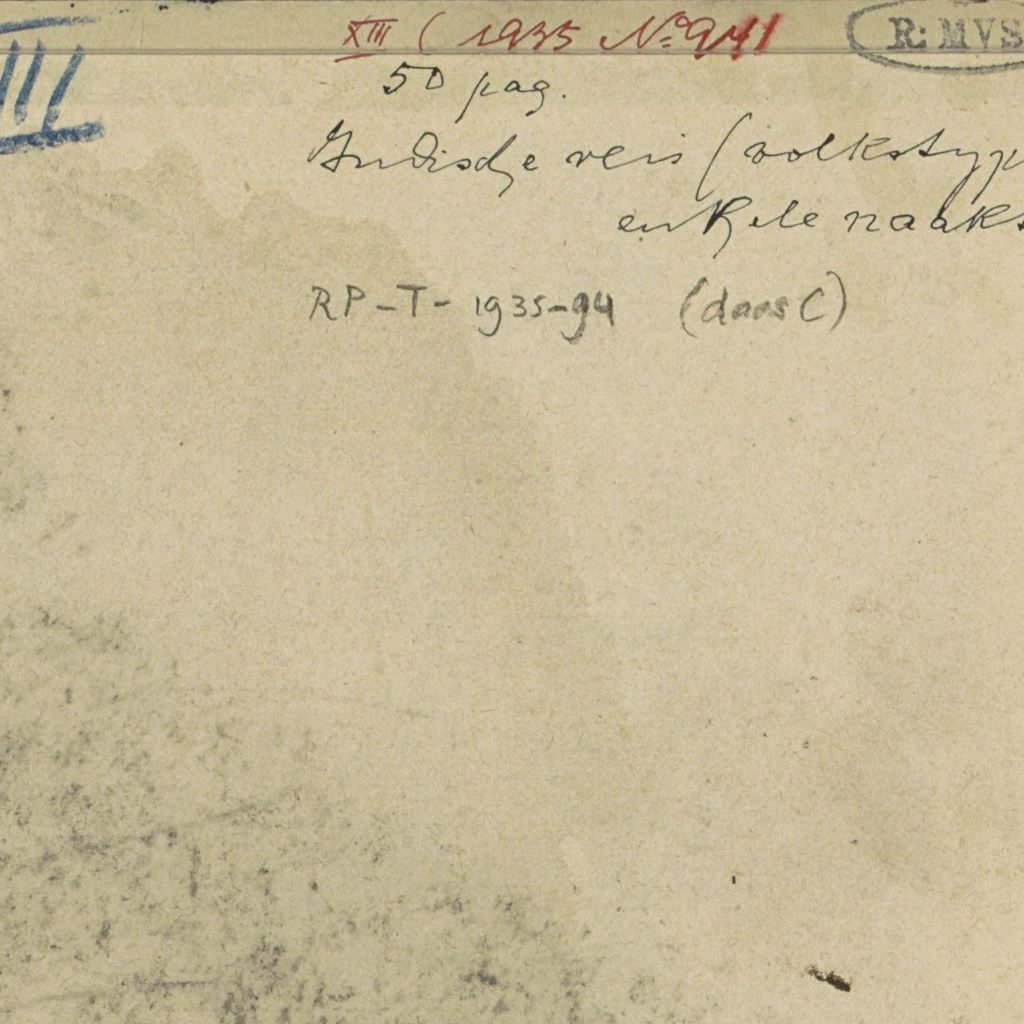 XIII ( 1935 No 941
R: MVS
III
50 pag.
Indische reis (volkstyp
enkele naakt
RP-T-1935-94 (doos C)